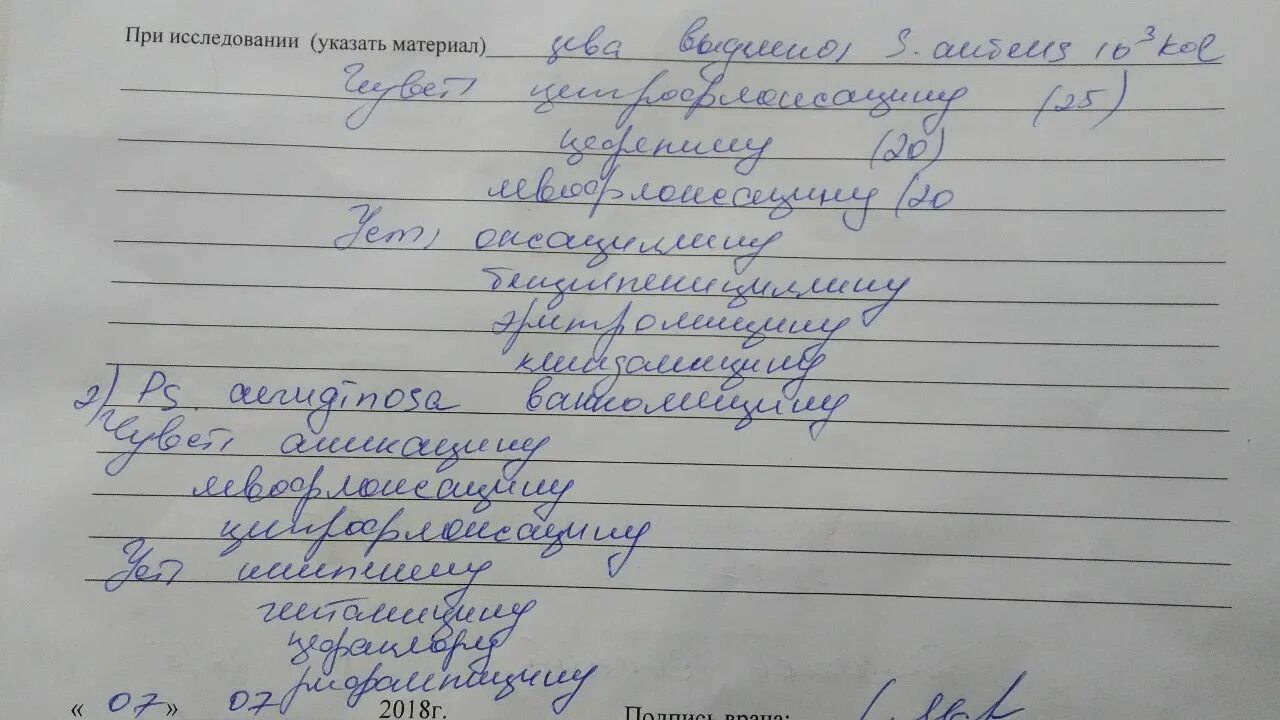 При исследовании (указать материал) зева выделено, S. 10³ кое
Чувств ципрофлоксацину (25)
цефепиму (20)
левофлоксацину (20
Уст, оксациллину
бензилпенициллину
эритромицину
клиндамицину
2) Ps. aeruginosa ванкомицину
Чувств амикацину
левофлоксацину
ципрофлоксацину
Уст
гентамицину
цефаклору
рифампицину
« 07 » 07 2018г. Подпись врача: